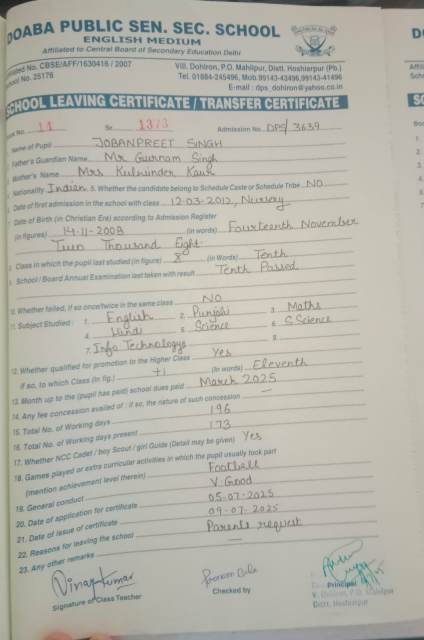 DOABA PUBLIC SEN. SEC. SCHOOL
ENGLISH MEDIUM
Affiliated to Central Board of Secondary Education Delhi
No. CBSE/AFF/1630416 / 2007 Vill. Dohlron, P.O. Mahilpur, Distt. Hoshiarpur (Pb.)
No. 25176 Tel. 01884-245496, Mob.99143-43496,99143-41496
E-mail : dps_dohlron@yahoo.co.in
SCHOOL LEAVING CERTIFICATE / TRANSFER CERTIFICATE
No. 14 Sr. 1373 Admission No. DPS/3639
Name of Pupil JOBANPREET SINGH
Father's Guardian Name Mr Gurnam Singh
Mother's Name Mrs Kulwinder Kaur
Nationality Indian 5. Whether the candidate belong to Schedule Caste or Schedule Tribe NO
Date of first admission in the school with class 12-03-2012, Nursery
Date of Birth (in Christian Era) according to Admission Register
(in figures) 14-11-2008 (in words) Fourteenth November
Two Thousand Eight
Class in which the pupil last studied (in figure) (in Words) Tenth
School / Board Annual Examination last taken with result Tenth Passed
10. Whether failed, if so once/twice in the same class NO
11. Subject Studied : 1. English 2. Punjabi 3. Maths
4. Hindi 5. Science 6. S.Science
7. Info Technology 8.
12. Whether qualified for promotion to the Higher Class Yes
if so, to which Class (in fig.) (in words) Eleventh
13. Month up to the (pupil has paid) school dues paid March 2025
14. Any fee concession availed of : if so, the nature of such concession —
15. Total No. of Working days 196
16. Total No. of Working days present 173
17. Whether NCC Cadet / boy Scout / girl Guide (Detail may be given) Yes
18. Games played or extra curricular activities in which the pupil usually took part
(mention achievement level therein) Football
19. General conduct V.Good
20. Date of application for certificate 05-07-2025
21. Date of issue of certificate 09-07-2025
22. Reasons for leaving the school Parents request
23. Any other remarks —
Vinay Kumar
Signature of Class Teacher Checked by Principal
Distt. Hoshiarpur